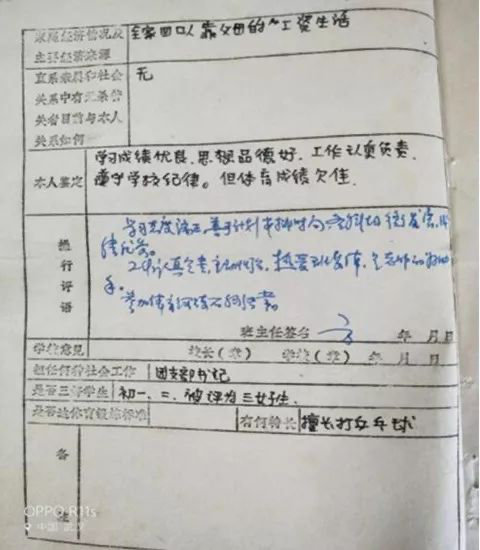 家庭经济情况及 全家四口靠父母的工资生活
主要经济来源
直系亲属和社会 无
关系中有无杀管
关者目前与本人
关系如何
本人鉴定 学习成绩优良、思想品德好、工作认真负责、
遵守学校纪律。但体育成绩欠佳.
操行评语
学习态度端正,善于计划安排时间,
绩优秀。
工作认真负责,主动,热爱班集体,
手。
参加体育锻炼不够
班主任签名 年 月 日
学校意见 校长(章) 学校(章) 年 月 日
担任何种社会工作 团支部书记
是否三好学生 初一、二、被评为三好学生.
是否达体育锻炼标准 有何特长 擅长打乒乓球
备
OPPO R11s
中国·武汉